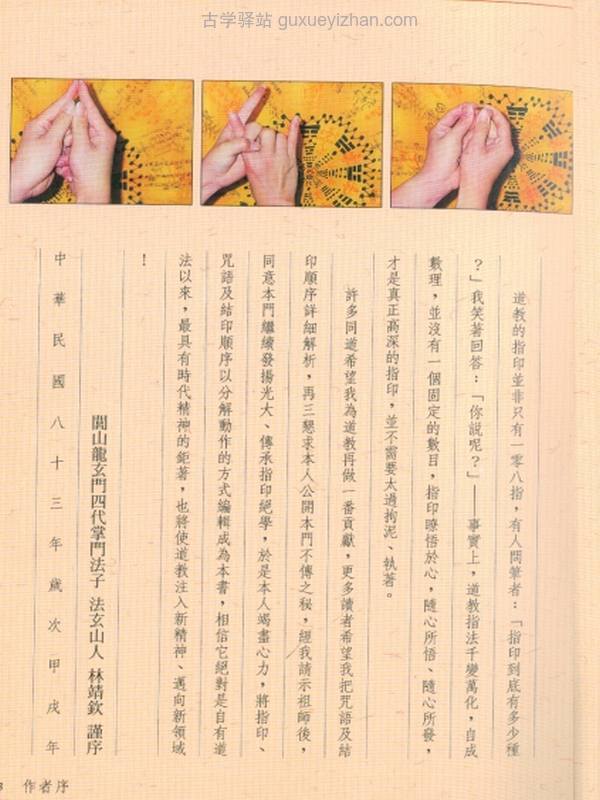 古学驿站 guxueyizhan.com
道教的指印並非只有一零八指，有人問筆者：「指印到底有多少種
？」我笑著回答：「你說呢？」——事實上，道教指法千變萬化，自成
數理，並沒有一個固定的數目，指印瞭悟於心，隨心所悟、隨心所發，
才是真正高深的指印，並不需要太過拘泥、執著。
許多同道希望我為道教再做一番貢獻，更多讀者希望我把咒語及結
印順序詳細解析，再三懇求本人公開本門不傳之秘，經我請示祖師後，
同意本門繼續發揚光大、傳承指印絕學，於是本人竭盡心力，將指印、
咒語及結印順序以分解動作的方式編輯成為本書，相信它絕對是自有道
法以來，最具有時代精神的鉅著，也將使道教注入新精神、邁向新領域
！
閭山龍玄門四代掌門法子 法玄山人 林靖欽 謹序
中華民國八十三年歲次甲戌年
3 作者序